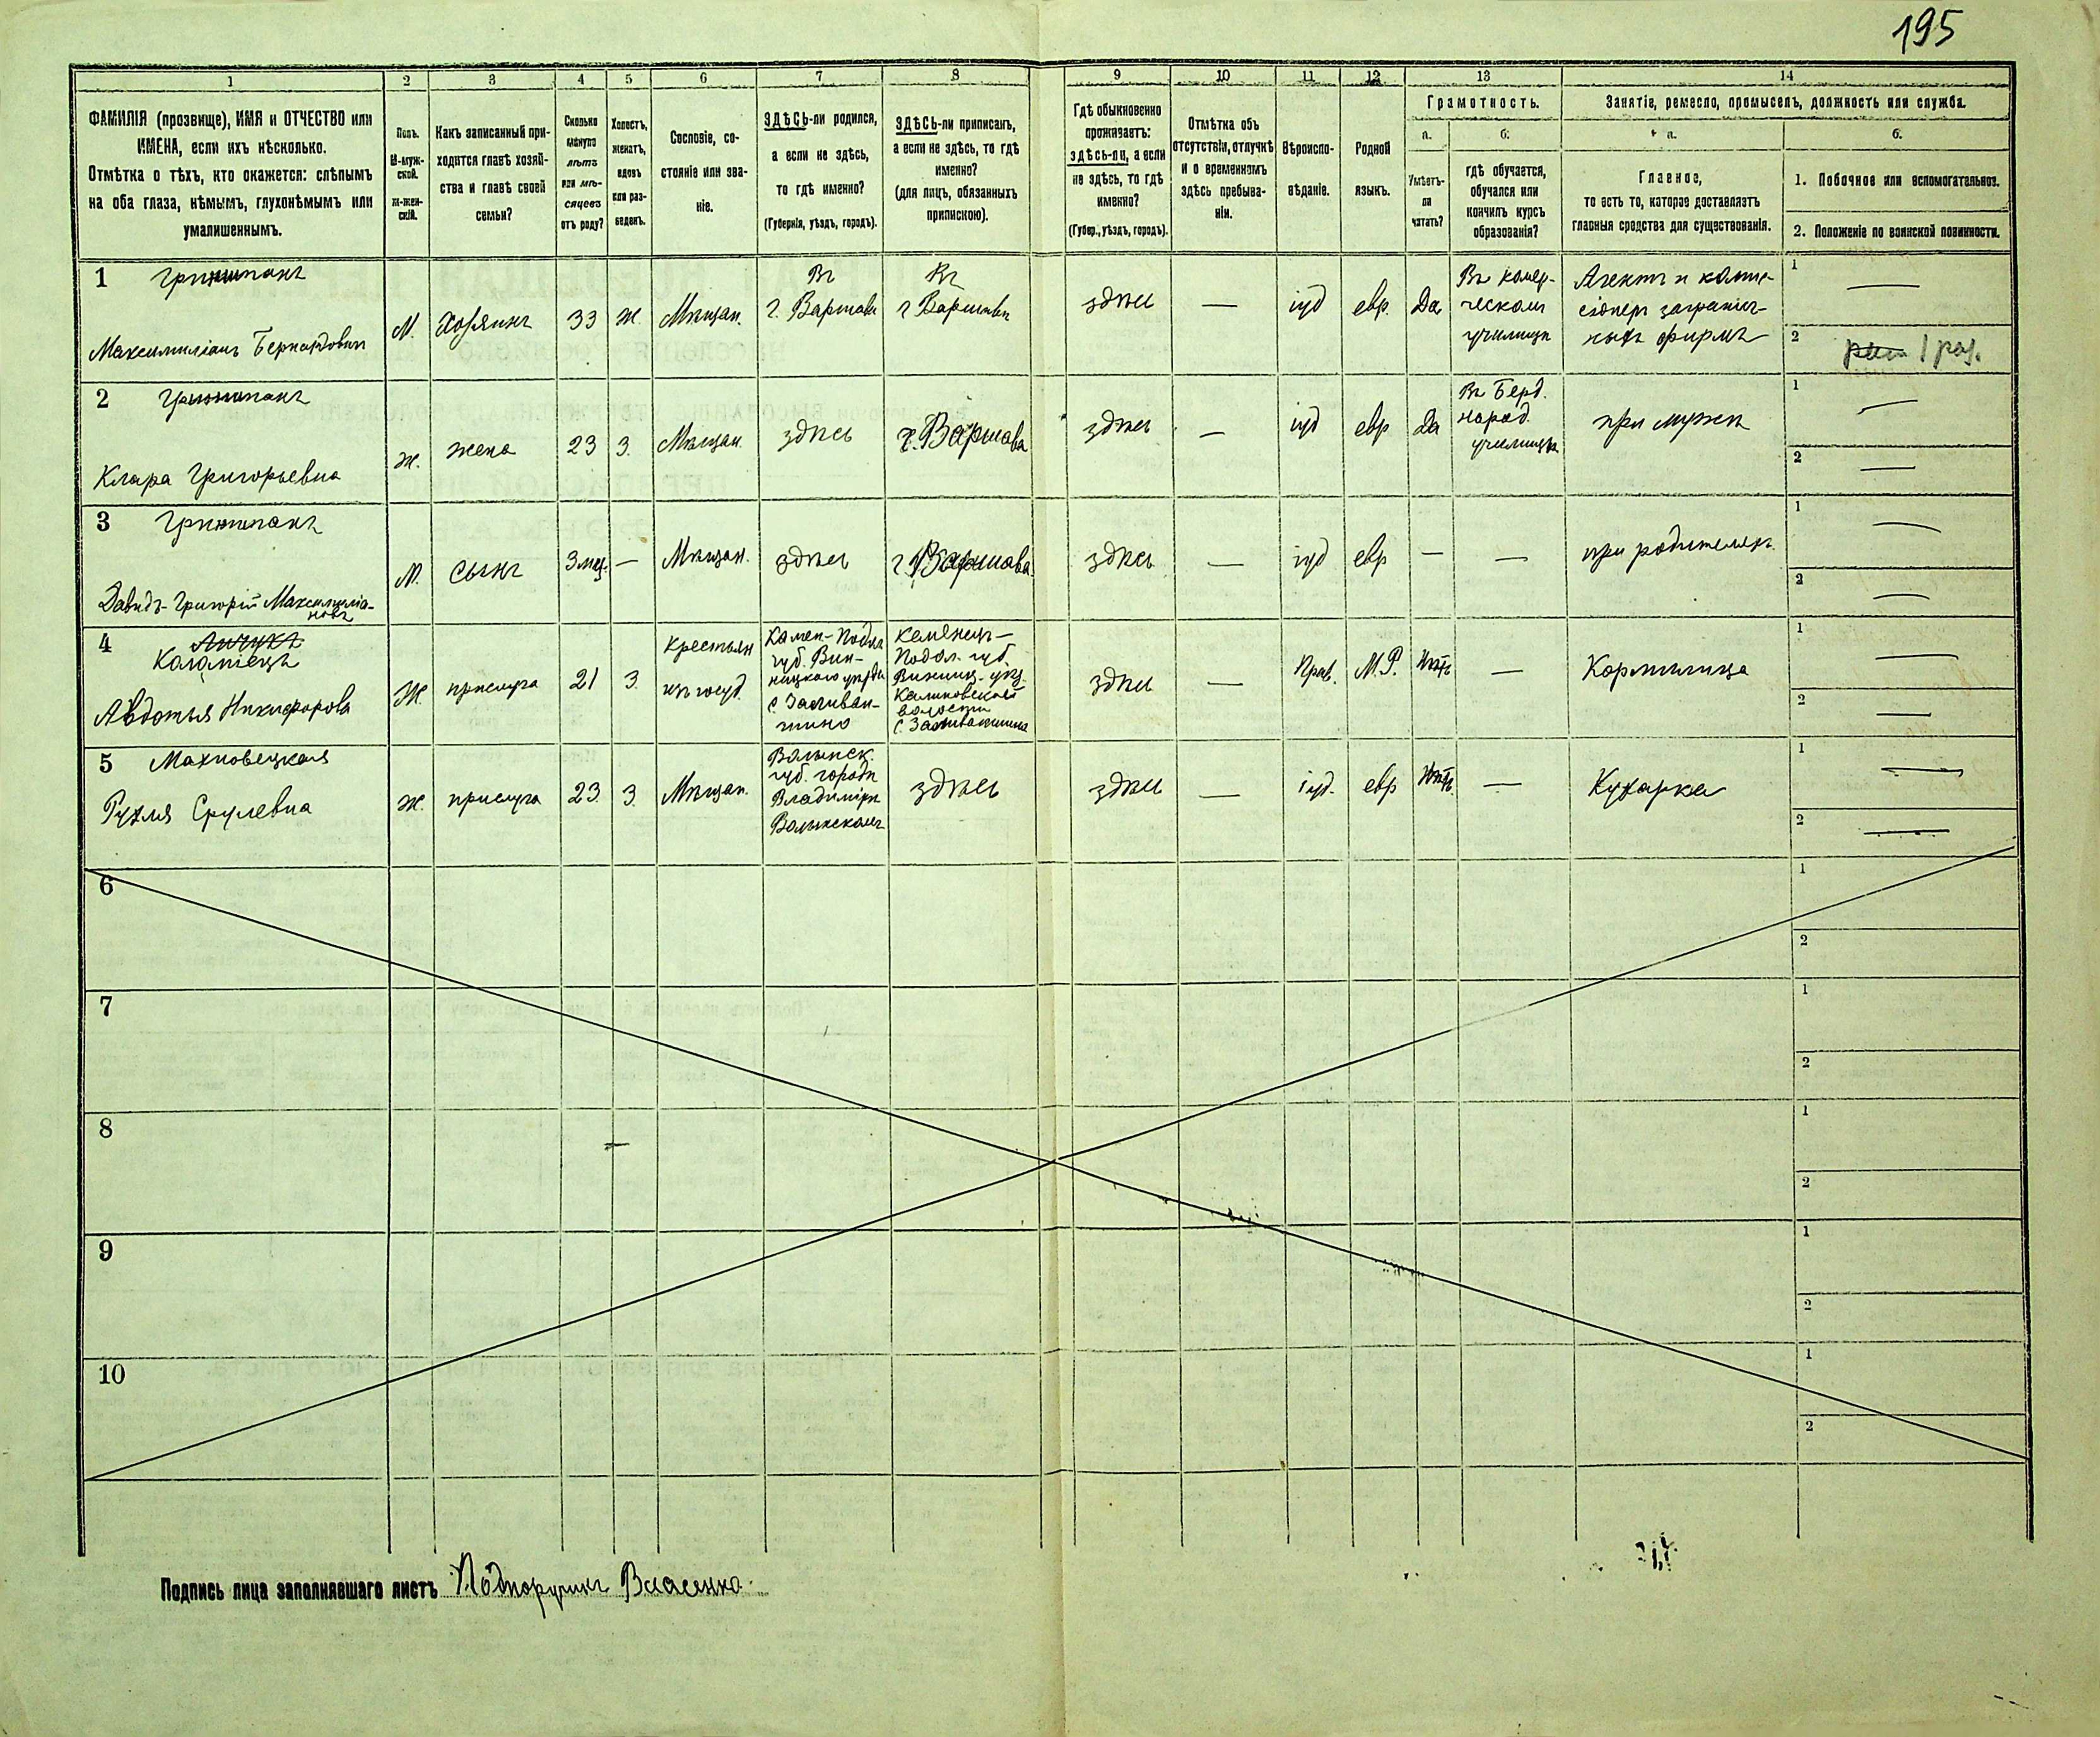 195
1
2
3
4
5
6
7
8
9
10
11
12
13
14
ФАМИЛІЯ (прозвище), ИМЯ и ОТЧЕСТВО или
ИМЕНА, если ихъ нѣсколько.
Отмѣтка о тѣхъ, кто окажется: слѣпымъ
на оба глаза, нѣмымъ, глухонѣмымъ или
умалишеннымъ.
Полъ.
М-муж-
ской.
ж-жен-
скій.
Какъ записанный при-
ходится главѣ хозяй-
ства и главѣ своей
семьи?
Сколько
минуло
лѣтъ
или мѣ-
сяцевъ
отъ роду?
Холостъ,
женатъ,
вдовъ
или раз-
веденъ.
Сословіе, со-
стояніе или зва-
ніе.
ЗДѢСЬ-ли родился,
а если не здѣсь,
то гдѣ именно?
(Губернія, уѣздъ, городъ).
ЗДѢСЬ-ли приписанъ,
а если не здѣсь, то гдѣ
именно?
(для лицъ, обязанныхъ
припискою).
Гдѣ обыкновенно
проживаетъ:
здѣсь-ли, а если
не здѣсь, то гдѣ
именно?
(Губер., уѣздъ, городъ).
Отмѣтка объ
отсутствіи, отлучкѣ
и о временномъ
здѣсь пребыва-
ніи.
Вѣроиспо-
вѣданіе.
Родной
языкъ.
Грамотность.
а.
Умѣетъ-
ли
читать?
б.
гдѣ обучается,
обучался или
кончилъ курсъ
образованія?
Занятіе, ремесло, промыселъ, должность или служба.
а.
Главное,
то есть то, которое доставляетъ
главныя средства для существованія.
б.
1. Побочное или вспомогательное.
2. Положеніе по воинской повинности.
1 Гриншпанъ
Максимиліанъ Бернардовичъ
М.
Хозяинъ
33
Ж.
Мѣщан.
Въ
г. Варшавѣ
Въ
г Варшавѣ
здѣсь
—
іуд
евр.
Да
Въ комер-
ческом
училищѣ
Агентъ и комис-
сіонеръ загранич-
ныхъ фирмъ
1 —
2 1 раз.
2 Гриншпанъ
Клара Григорьевна
Ж.
жена
23
З.
Мѣщан.
здѣсь
г. Варшава
здѣсь
—
іуд
евр
Да
Въ Берд.
народ.
училищѣ
при мужѣ
1 —
2 —
3 Гриншпанъ
Давидъ-Григорій Максимиліа-
новъ
М.
Сынъ
3 мец.
—
Мѣщан.
здѣсь
г Варшава
здѣсь
—
іуд
евр
—
—
при родителяхъ
1 —
2 —
4
Каламіецъ
Авдотья Никифорова
Ж.
прислуга
21
З.
Крестьян
изъ госуд.
Камен-Подол
губ. Вин-
ницкого уѣзда
с. Заливан-
щино
Каменец-
Подол. губ.
Винниц. уѣз.
Калиновской
волости
с. Заливанщина
здѣсь
—
Прав.
М.Р.
Нѣтъ
—
Кормилица
1 —
2 —
5 Махновецкая
Рухля Срулевна
Ж.
прислуга
23
З.
Мѣщан.
Волынск.
губ. городѣ
Владимірѣ
Волынскомъ
здѣсь
здѣсь
—
іуд.
евр
Нѣтъ
—
Кухарка
1 —
2 —
6
1
2
7
1
2
8
1
2
9
1
2
10
1
2
Подпись лица заполнявшаго листъ Подпоручикъ Власенко